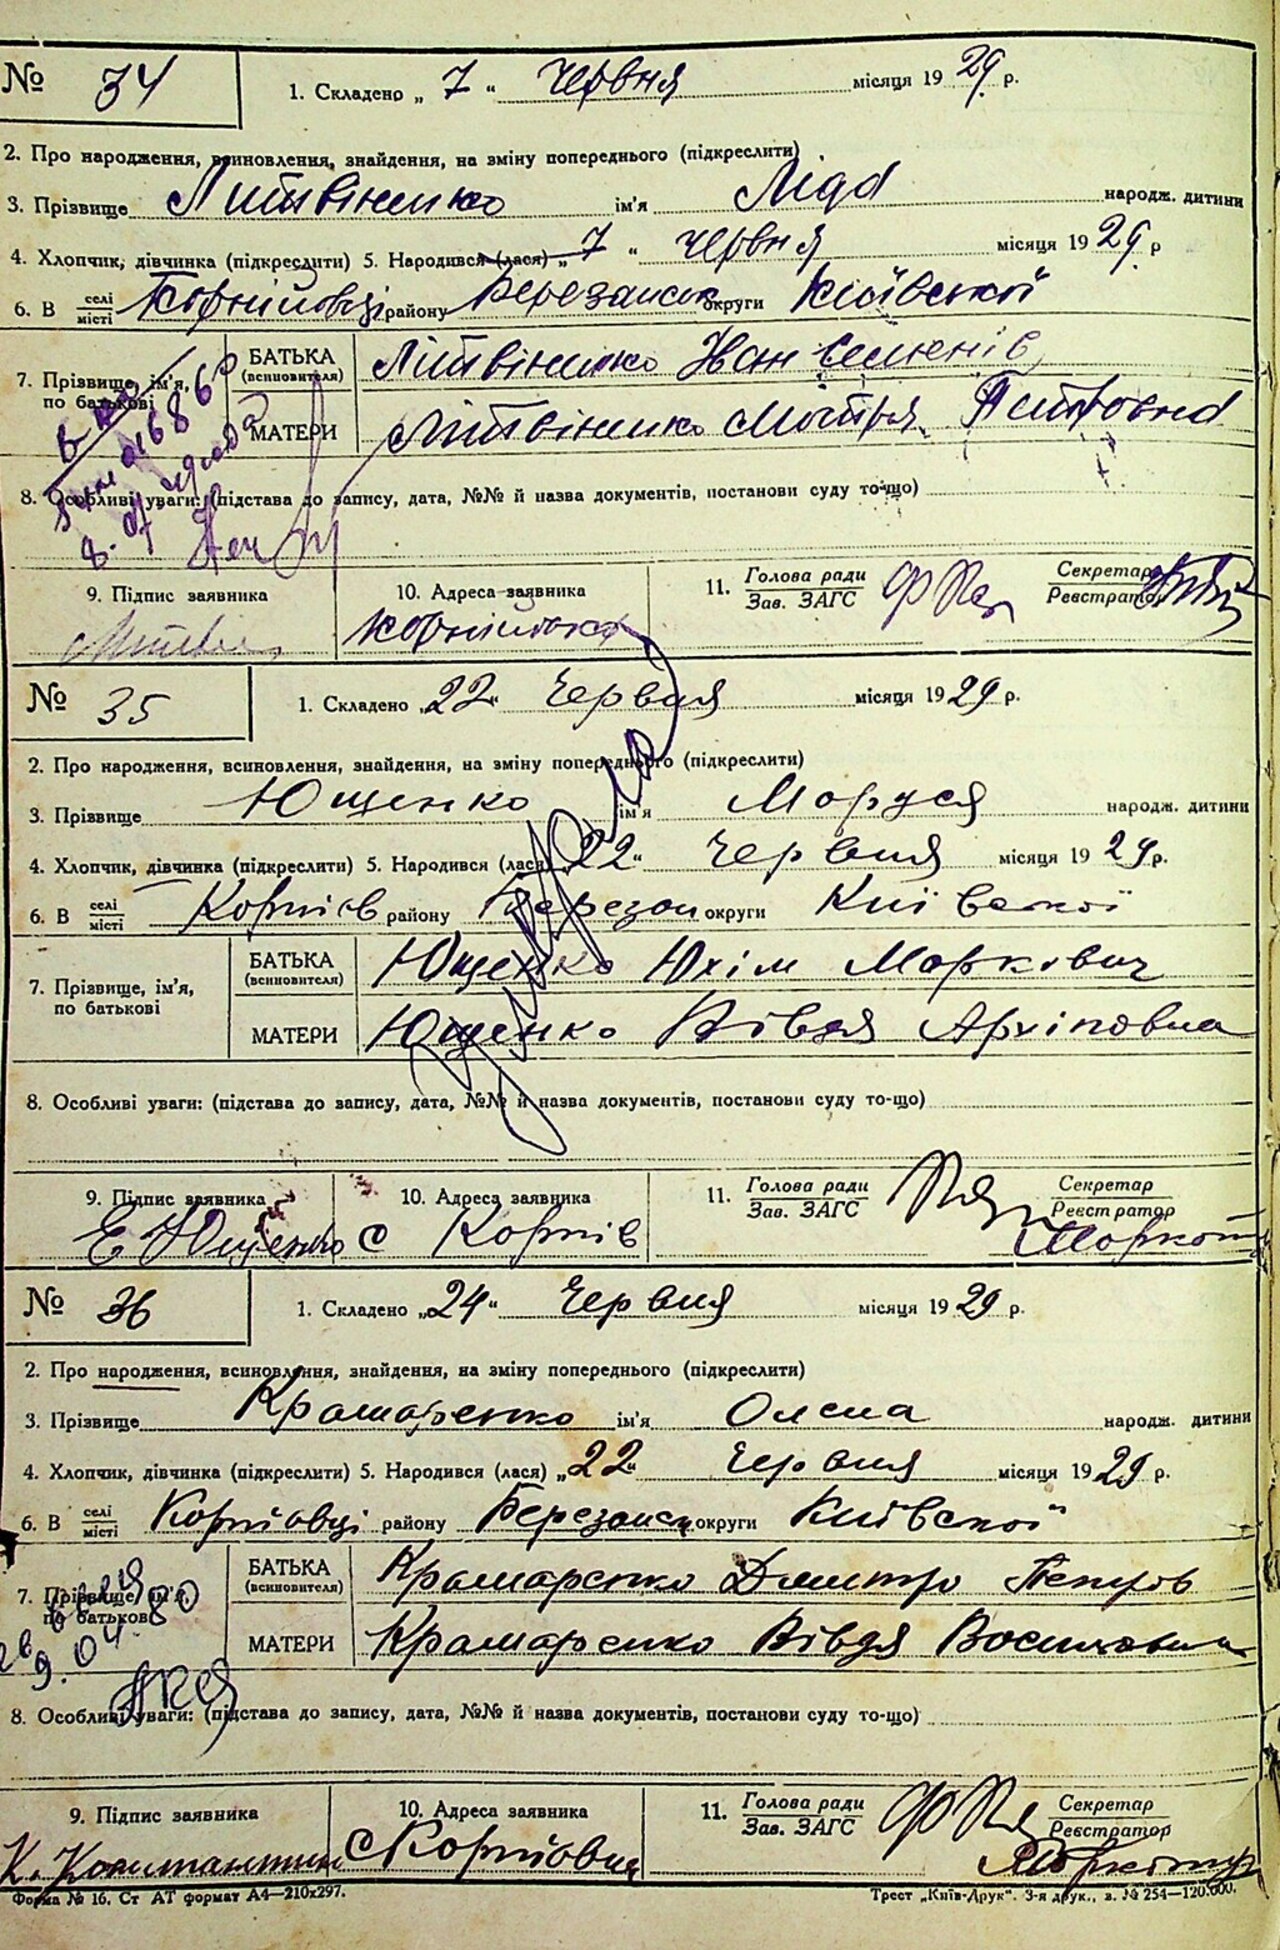 № 34 1. Складено „ 7 “ Червня місяця 19 29 р.
2. Про народження, всиновлення, знайдення, на зміну попереднього (підкреслити)
3. Прізвище Литвіненко ім'я Ліда народж. дитини
4. Хлопчик, дівчинка (підкреслити) 5. Народився (лася) „ 7 “ Червня місяця 19 29 р
6. В селі місті району Березанск округи Київської
7. Прізвище, ім'я, по батькові БАТЬКА (всиновителя) Літвіненко Іван Семенів
МАТЕРИ Літвіненко Мотря Петровна
8. Особливі уваги: (підстава до запису, дата, №№ й назва документів, постанови суду то-що)
9. Підпис заявника 10. Адреса заявника 11. Голова ради Зав. ЗАГС Секретар Реєстратор
№ 35 1. Складено „ 22 “ Червня місяця 19 29 р.
2. Про народження, всиновлення, знайдення, на зміну попереднього (підкреслити)
3. Прізвище Ющенко ім'я Маруся народж. дитини
4. Хлопчик, дівчинка (підкреслити) 5. Народився (лася) „ 22 “ Червня місяця 19 29 р.
6. В селі місті Корнієв району Березан округи Київської
7. Прізвище, ім'я, по батькові БАТЬКА (всиновителя) Ющенко Юхім Маркович
МАТЕРИ Ющенко Вівдя Архіповна
8. Особливі уваги: (підстава до запису, дата, №№ й назва документів, постанови суду то-що)
9. Підпис заявника 10. Адреса заявника 11. Голова ради Зав. ЗАГС Секретар Реєстратор
Е Ющенко с Корнів
№ 36 1. Складено „ 24 “ Червня місяця 19 29 р.
2. Про народження, всиновлення, знайдення, на зміну попереднього (підкреслити)
3. Прізвище Крамаренко ім'я Олена народж. дитини
4. Хлопчик, дівчинка (підкреслити) 5. Народився (лася) „ 22 “ Червня місяця 19 29 р.
6. В селі місті Корніовці району Березанск округи Київскої
7. Прізвище, ім'я, по батькові БАТЬКА (всиновителя) Крамаренко Дмитро Петров
МАТЕРИ Крамаренко Вівдя
9.04.80
8. Особливі уваги: (підстава до запису, дата, №№ й назва документів, постанови суду то-що)
9. Підпис заявника 10. Адреса заявника 11. Голова ради Зав. ЗАГС Секретар Реєстратор
Форма № 16. Ст АТ формат А4—210х297. Трест „Київ-Друк“. 3-я друк., з. № 254—120.000.